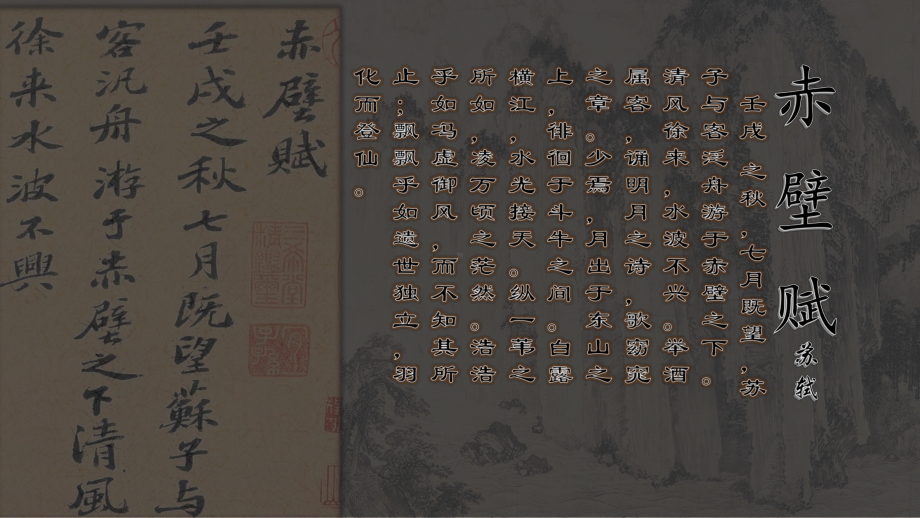 赤壁赋
苏轼
壬戌 之秋,七月既望,苏
子与客泛舟游于赤壁之下。
清风徐来,水波不兴。举酒
属客,诵明月之诗,歌窈窕
之章。少焉,月出于东山之
上,徘徊于斗牛之间。白露
横江,水光接天。纵一苇之
所如,凌万顷之茫然。浩浩
乎如冯虚御风,而不知其所
止;飘飘乎如遗世独立,羽
化而登仙。
赤壁賦
壬戌之秋七月既望蘇子与
客汎舟游于赤壁之下清風
徐来水波不興